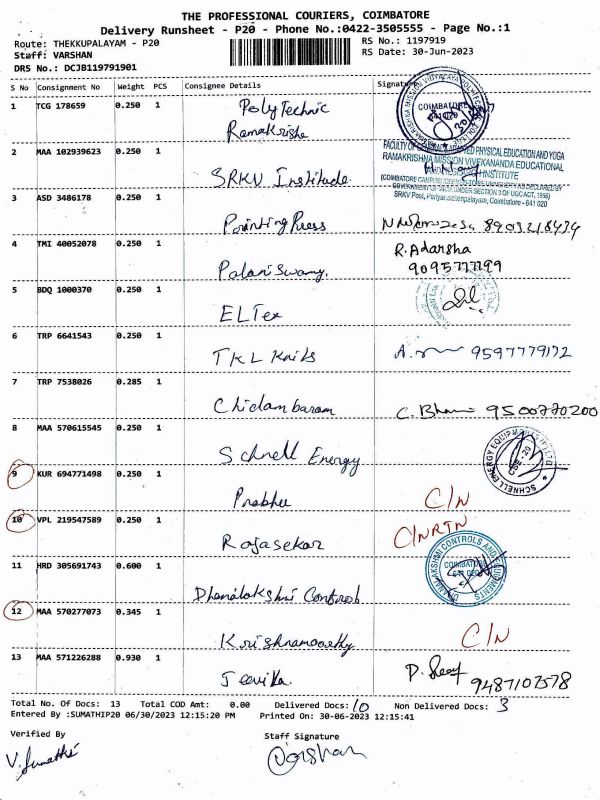 THE PROFESSIONAL COURIERS, COIMBATORE
Delivery Runsheet - P20 - Phone No.:0422-3505555 - Page No.:1
Route: THEKKUPALAYAM - P20 RS No.: 1197919
Staff: VARSHAN RS Date: 30-Jun-2023
DRS No.: DCJB119791901
S No Consignment No Weight PCS Consignee Details Signature
1 TCG 178659 0.250 1 Polytechnic
Ramakrishna COIMBATORE
2 MAA 102939623 0.250 1 SRKV Institude
RAMAKRISHNA MISSION VIVEKANANDA EDUCATIONAL
SRKV Post, Periyanaickenpalayam, Coimbatore - 641 020
3 ASD 3486178 0.250 1 Printing Press 8903218434
4 TMI 40052078 0.250 1 Palani Swamy. R. Adarsha
9095777799
5 BDQ 1000370 0.250 1 EL Tex
6 TRP 6641543 0.250 1 TKL Knits 9597779172
7 TRP 7538026 0.285 1 Chidambaram C. Bhanu 9500770200
8 MAA 570615545 0.250 1 Schnell Energy SCHNELL ENERGY EQUIPMENTS (P) LTD
9 KUR 694771498 0.250 1 Prabhu C/N
10 VPL 219547589 0.250 1 Rajasekar C/N RTN
11 HRD 305691743 0.600 1 Dhanalakshmi Control DHANALAKSHMI CONTROLS AND
12 MAA 570277073 0.345 1 Krishnamoorthy C/N
13 MAA 571226288 0.930 1 Jeevika 9487107578
Total No. Of Docs: 13 Total COD Amt: 0.00 Delivered Docs: 10 Non Delivered Docs: 3
Entered By :SUMATHIP20 06/30/2023 12:15:20 PM Printed On: 30-06-2023 12:15:41
Verified By Staff Signature
V. Sumathi Varshan